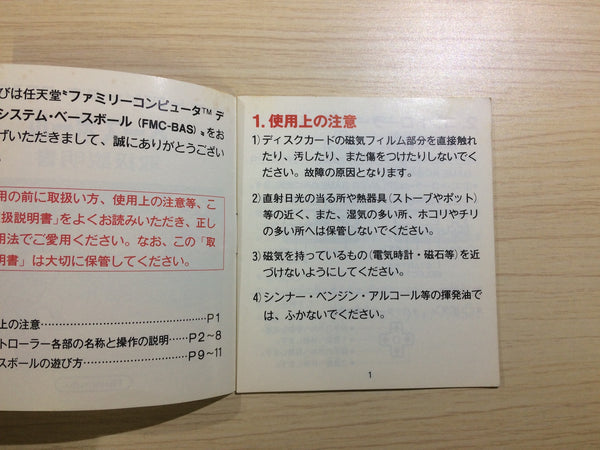 びは任天堂〝ファミリーコンピュータ™ デ
システム・ベースボール (FMC-BAS)〟をお
げいただきまして、誠にありがとうござい
。
用の前に取扱い方、使用上の注意等、こ
扱説明書」をよくお読みいただき、正し
用法でご愛用ください。なお、この「取
明書」は大切に保管してください。
上の注意……P1
トローラー各部の名称と操作の説明……P2~8
スボールの遊び方……P9~11
1. 使用上の注意
1) ディスクカードの磁気フィルム部分を直接触れ
たり、汚したり、また傷をつけたりしないでく
ださい。故障の原因となります。
2) 直射日光の当る所や熱器具(ストーブやポット)
等の近く、また、湿気の多い所、ホコリやチリ
の多い所へは保管しないでください。
3) 磁気を持っているもの(電気時計・磁石等)を近
づけないようにしてください。
4) シンナー・ベンジン・アルコール等の揮発油で
は、ふかないでください。
1